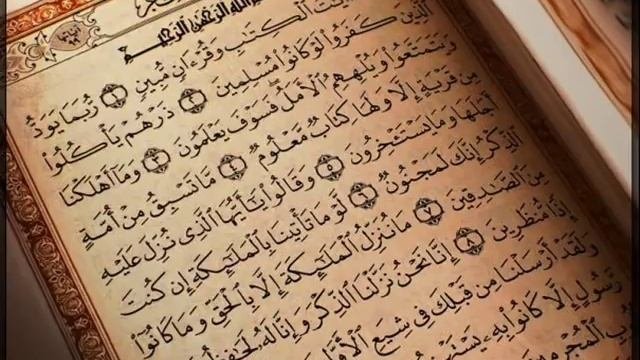 ٱللَّهِ ٱلرَّحْمَـٰنِ ٱلرَّحِيمِ
ٱلْكِتَـٰبِ وَقُرْءَانٍ مُّبِينٍ ١ رُّبَمَا يَوَدُّ
ٱلَّذِينَ كَفَرُوا۟ لَوْ كَانُوا۟ مُسْلِمِينَ ٢ ذَرْهُمْ يَأْكُلُوا۟
وَيَتَمَتَّعُوا۟ وَيُلْهِهِمُ ٱلْأَمَلُ فَسَوْفَ يَعْلَمُونَ ٣ وَمَآ أَهْلَكْنَا
مِن قَرْيَةٍ إِلَّا وَلَهَا كِتَابٌ مَّعْلُومٌ ٤ مَّا تَسْبِقُ مِنْ أُمَّةٍ
أَجَلَهَا وَمَا يَسْتَـْٔخِرُونَ ٥ وَقَالُوا۟ يَـٰٓأَيُّهَا ٱلَّذِى نُزِّلَ عَلَيْهِ
ٱلذِّكْرُ إِنَّكَ لَمَجْنُونٌ ٦ لَّوْ مَا تَأْتِينَا بِٱلْمَلَـٰٓئِكَةِ إِن كُنتَ
مِنَ ٱلصَّـٰدِقِينَ ٧ مَا نُنَزِّلُ ٱلْمَلَـٰٓئِكَةَ إِلَّا بِٱلْحَقِّ وَمَا كَانُوٓا۟
إِذًا مُّنظَرِينَ ٨ إِنَّا نَحْنُ نَزَّلْنَا ٱلذِّكْرَ وَإِنَّا لَهُۥ
وَلَقَدْ أَرْسَلْنَا مِن قَبْلِكَ فِى شِيَعِ
رَّسُولٍ إِلَّا كَانُوا۟ بِهِۦ